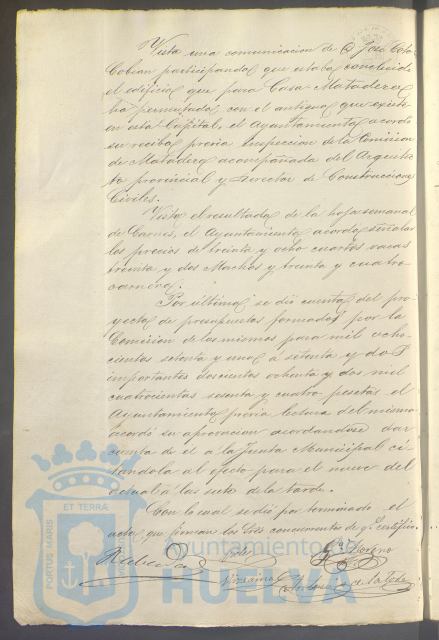 Vista una comunicacion de D. José Coto
Cobian participando que estaba concluido
el edificio que para Casa Matadero
ha permutado con el antiguo que existe
en esta Capital, el Ayuntamiento acordó
su recibo previa inspeccion de la Comision
de Matadero acompañada del Arquitec
to provincial y Director de Construcciones
Civiles.
Visto el resultado de la hoja semanal
de Carnes, el Ayuntamiento acordó señalar
los precios de treinta y ocho cuartos vacas
treinta y dos Machos y treinta y cuatro
carnero.
Por último se dió cuenta del pro-
yecto de presupuestos formados por la
Comision de los mismos para mil ocho-
cientos setenta y uno á setenta y dos
importantes doscientos ochenta y dos mil
cuatrocientas sesenta y cuatro pesetas el
Ayuntamiento previa lectura del mismo
acordó su aprovacion acordandose dar
cuenta de el a la Junta Municipal ci-
tandola al efecto para el nueve del
actual á las siete de la tarde.
Con lo cual se dió por terminado el
acto que firman los Sres concurrentes de q.e certifico.
Moreno
PORTUS MARIS ET TERRAE
Ayuntamiento de
HUELVA